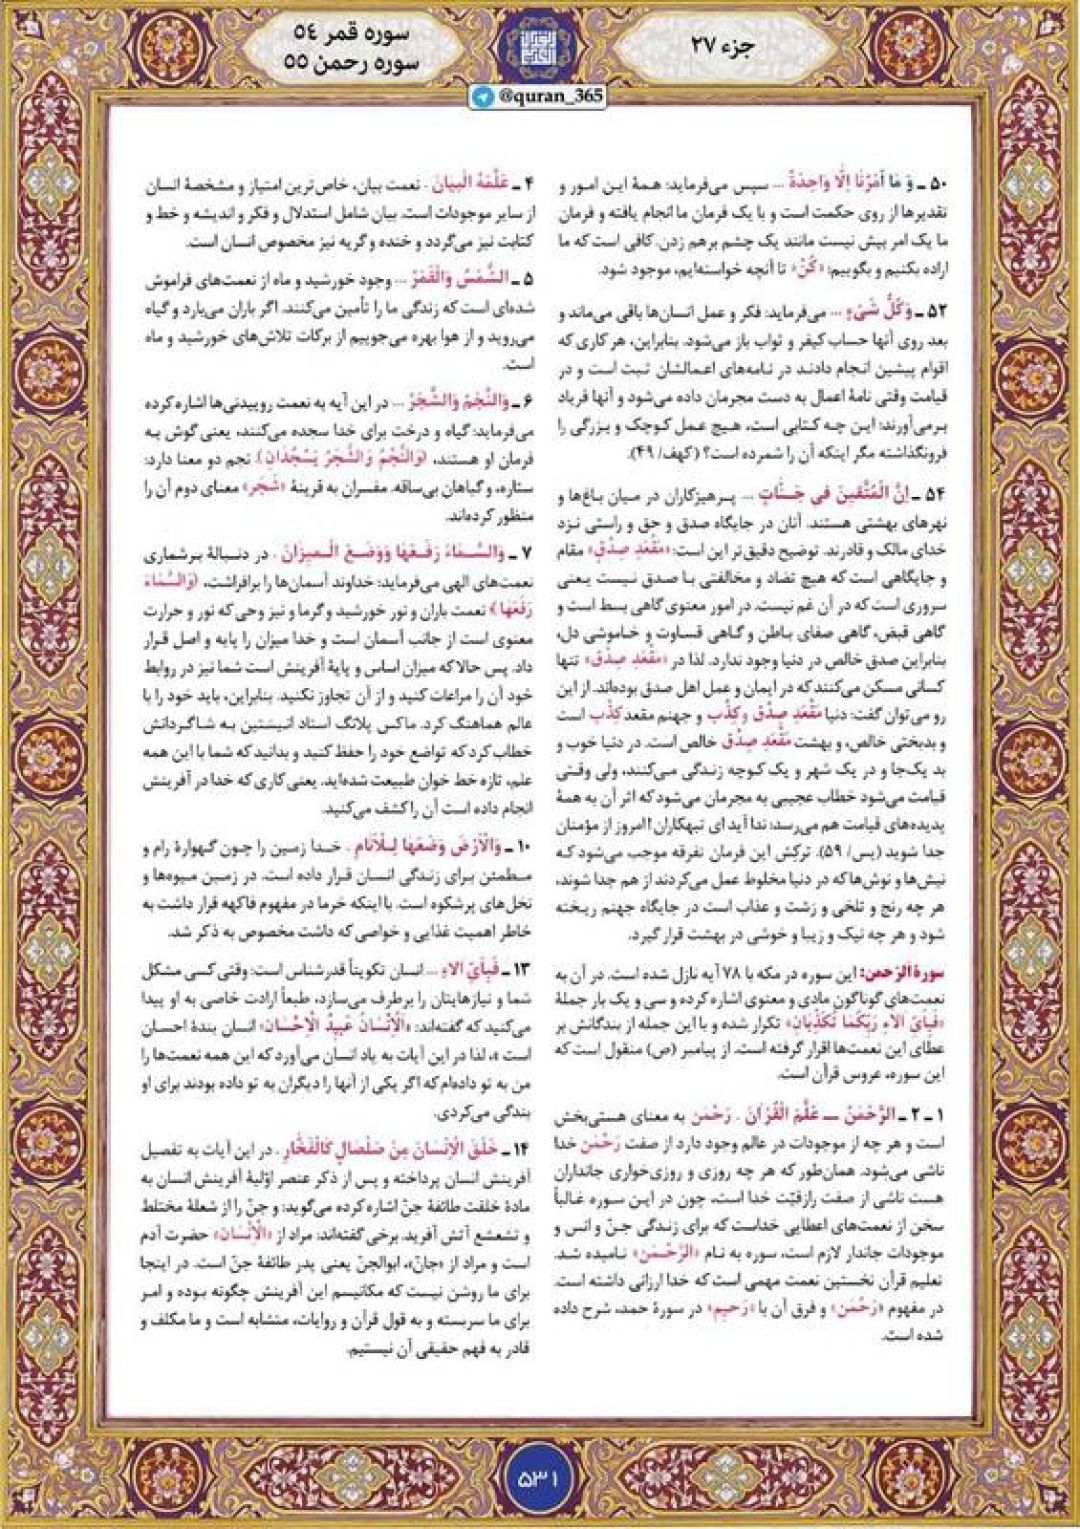 جزء ۲۷
سوره قمر ۵۴
سوره رحمن ۵۵
@quran_365
۵۰ ـ وَ مَا أَمْرُنَا اِلَّا وَاحِدَةٌ ... سپس می‌فرماید: همهٔ این امور و
تقدیرها از روی حکمت است و با یک فرمان ما انجام یافته و فرمان
ما یک امر بیش نیست مانند یک چشم برهم زدن. کافی است که ما
اراده بکنیم و بگوییم: «کُنْ» تا آنچه خواسته‌ایم، موجود شود.
۵۲ ـ وَکُلُّ شَیْءٍ ... می‌فرماید: فکر و عمل انسان‌ها باقی می‌ماند و
بعد روی آنها حساب کیفر و ثواب باز می‌شود. بنابراین، هر کاری که
اقوام پیشین انجام دادند در نامه‌های اعمالشان ثبت است و در
قیامت وقتی نامهٔ اعمال به دست مجرمان داده می‌شود و آنها فریاد
برمی‌آورند: این چه کتابی است، هیچ عمل کوچک و بزرگی را
فرونگذاشته مگر اینکه آن را شمرده است؟ (کهف/ ۴۹).
۵۴ ـ اِنَّ الْمُتَّقینَ فی جَنَّاتٍ ... پرهیزکاران در میان باغ‌ها و
نهرهای بهشتی هستند. آنان در جایگاه صدق و حق و راستی نزد
خدای مالک و قادرند. توضیح دقیق‌تر این است: «مَقْعَدِ صِدْقٍ» مقام
و جایگاهی است که هیچ تضاد و مخالفتی با صدق نیست یعنی
سروری است که در آن غم نیست. در امور معنوی گاهی بسط است و
گاهی قبض، گاهی صفای باطن و گاهی قساوت و خاموشی دل،
بنابراین صدق خالص در دنیا وجود ندارد. لذا در «مَقْعَدِ صِدْقٍ» تنها
کسانی مسکن می‌کنند که در ایمان و عمل اهل صدق بوده‌اند. از این
رو می‌توان گفت: دنیا مَقْعَدِ صِدْقٍ وکِذْب و جهنم مقعد کِذْب است
و بدبختی خالص، و بهشت مَقْعَدِ صِدْق خالص است. در دنیا خوب و
بد یک‌جا و در یک شهر و یک کوچه زندگی می‌کنند، ولی وقتی
قیامت می‌شود خطاب عجیبی به مجرمان می‌شود که اثر آن به همهٔ
پدیده‌های قیامت هم می‌رسد: ندا آید ای تبهکاران! امروز از مؤمنان
جدا شوید (یس/ ۵۹). ترکش این فرمان تفرقه موجب می‌شود که
نیش‌ها و نوش‌ها که در دنیا مخلوط عمل می‌کردند از هم جدا شوند،
هر چه رنج و تلخی و زشت و عذاب است در جایگاه جهنم ریخته
شود و هر چه نیک و زیبا و خوشی در بهشت قرار گیرد.
سورهٔ الرّحمن: این سوره در مکه با ۷۸ آیه نازل شده است. در آن به
نعمت‌های گوناگون مادی و معنوی اشاره کرده و سی و یک بار جملهٔ
«فَبِأَیِّ آلاءِ رَبِّکُمَا تُکَذِّبَانِ» تکرار شده و با این جمله از بندگانش بر
عطای این نعمت‌ها اقرار گرفته است. از پیامبر (ص) منقول است که
این سوره، عروس قرآن است.
۱ ـ ۲ ـ الرَّحْمٰنُ ـ عَلَّمَ الْقُرْآنَ . رَحْمٰن به معنای هستی‌بخش
است و هر چه از موجودات در عالم وجود دارد از صفت رَحْمٰن خدا
ناشی می‌شود. همان‌طور که هر چه روزی و روزی‌خواری جانداران
هست ناشی از صفت رازقیّت خدا است، چون در این سوره غالباً
سخن از نعمت‌های اعطایی خداست که برای زندگی جنّ و انس و
موجودات جاندار لازم است، سوره به نام «الرَّحْمٰن» نامیده شد.
تعلیم قرآن نخستین نعمت مهمی است که خدا ارزانی داشته است.
در مفهوم «رَحْمٰن» و فرق آن با «رَحیم» در سورهٔ حمد، شرح داده
شده است.
۴ ـ عَلَّمَهُ الْبَیَانَ . نعمت بیان، خاص‌ترین امتیاز و مشخصهٔ انسان
از سایر موجودات است. بیان شامل استدلال و فکر و اندیشه و خط و
کتابت نیز می‌گردد و خنده و گریه نیز مخصوص انسان است.
۵ ـ الشَّمْسُ وَالْقَمَرُ ... وجود خورشید و ماه از نعمت‌های فراموش
شده‌ای است که زندگی ما را تأمین می‌کنند. اگر باران می‌بارد و گیاه
می‌روید و از هوا بهره می‌جوییم از برکات تلاش‌های خورشید و ماه
است.
۶ ـ وَالنَّجْمُ وَالشَّجَرُ ... در این آیه به نعمت روییدنی‌ها اشاره کرده
می‌فرماید: گیاه و درخت برای خدا سجده می‌کنند، یعنی گوش به
فرمان او هستند، ﴿وَالنَّجْمُ وَالشَّجَرُ یَسْجُدَانِ﴾ نجم دو معنا دارد:
ستاره، و گیاهان بی‌ساقه. مفسران به قرینهٔ «شَجَر» معنای دوم آن را
منظور کرده‌اند.
۷ ـ وَالسَّمَاءَ رَفَعَهَا وَوَضَعَ الْمیزَانَ . در دنبالهٔ برشماری
نعمت‌های الهی می‌فرماید: خداوند آسمان‌ها را برافراشت، ﴿وَالسَّمَاءَ
رَفَعَهَا﴾ نعمت باران و نور خورشید و گرما و نیز وحی که نور و حرارت
معنوی است از جانب آسمان است و خدا میزان را پایه و اصل قرار
داد. پس حالا که میزان اساس و پایهٔ آفرینش است شما نیز در روابط
خود آن را مراعات کنید و از آن تجاوز نکنید. بنابراین، باید خود را با
عالم هماهنگ کرد. ماکس پلانگ استاد انیشتین به شاگردانش
خطاب کرد که تواضع خود را حفظ کنید و بدانید که شما با این همه
علم، تازه خط خوان طبیعت شده‌اید. یعنی کاری که خدا در آفرینش
انجام داده است آن را کشف می‌کنید.
۱۰ ـ وَالْاَرْضَ وَضَعَهَا لِلْاَنَامِ . خدا زمین را چون گهوارهٔ رام و
مطمئن برای زندگی انسان قرار داده است. در زمین میوه‌ها و
نخل‌های پرشکوه است. با اینکه خرما در مفهوم فاکهه قرار داشت به
خاطر اهمیت غذایی و خواصی که داشت مخصوص به ذکر شد.
۱۳ ـ فَبِأَیِّ آلاءِ ... انسان تکویناً قدرشناس است: وقتی کسی مشکل
شما و نیازهایتان را برطرف می‌سازد، طبعاً ارادت خاصی به او پیدا
می‌کنید که گفته‌اند: «اَلْاِنْسَانُ عَبیدُ الْاِحْسَان» انسان بندهٔ احسان
است »، لذا در این آیات به یاد انسان می‌آورد که این همه نعمت‌ها را
من به تو داده‌ام که اگر یکی از آنها را دیگران به تو داده بودند برای او
بندگی می‌کردی.
۱۴ ـ خَلَقَ الْاِنْسَانَ مِنْ صَلْصَالٍ کَالْفَخَّارِ . در این آیات به تفصیل
آفرینش انسان پرداخته و پس از ذکر عنصر اوّلیهٔ آفرینش انسان به
مادهٔ خلقت طائفهٔ جنّ اشاره کرده می‌گوید: و جنّ را از شعلهٔ مختلط
و تشعشع آتش آفرید. برخی گفته‌اند: مراد از «الْاِنْسَان» حضرت آدم
است و مراد از «جانّ»، ابوالجنّ یعنی پدر طائفهٔ جنّ است. در اینجا
برای ما روشن نیست که مکانیسم این آفرینش چگونه بوده و امر
برای ما سربسته و به قول قرآن و روایات، متشابه است و ما مکلف و
قادر به فهم حقیقی آن نیستیم.
۵۳۱